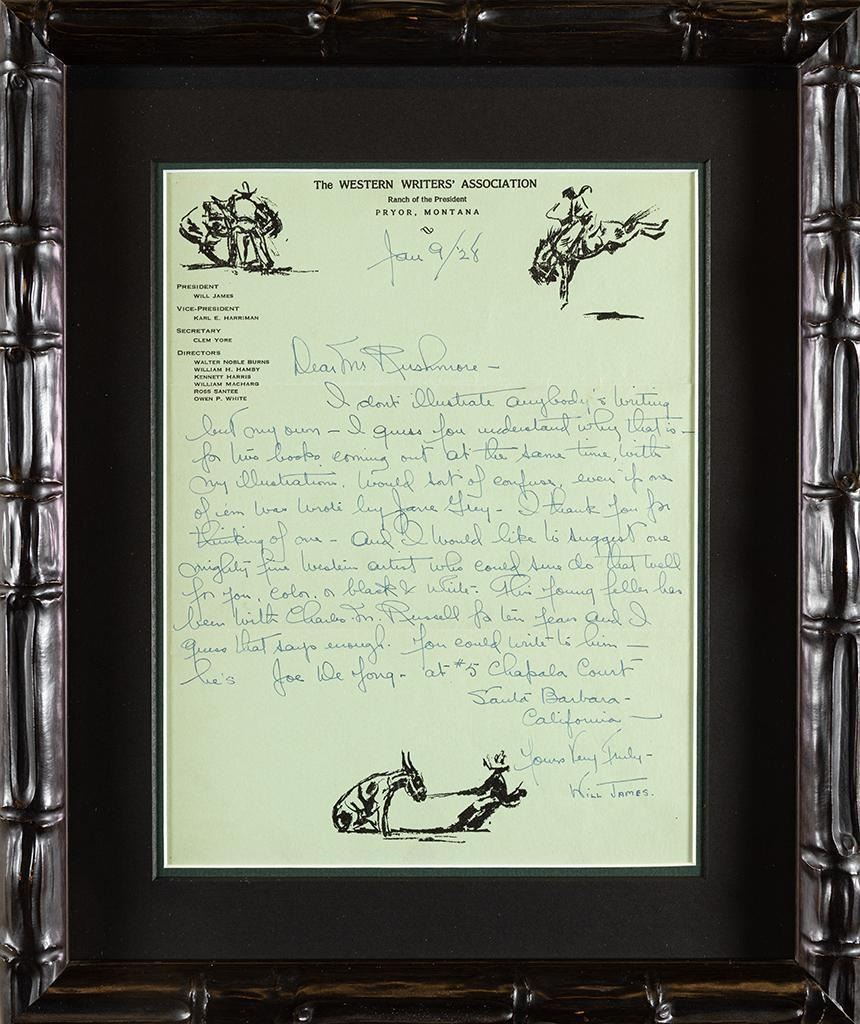 The WESTERN WRITERS' ASSOCIATION
Ranch of the President
PRYOR, MONTANA
Jan 9/'28
PRESIDENT
WILL JAMES
VICE-PRESIDENT
KARL E. HARRIMAN
SECRETARY
CLEM YORE
DIRECTORS
WALTER NOBLE BURNS
WILLIAM H. HAMBY
KENNETT HARRIS
WILLIAM MACHARG
ROSS SANTEE
OWEN P. WHITE
Dear Mr Rushmore —
I dont illustrate anybody's writing
but my own — I guess you understand why that is —
for two books coming out at the same time, with
my illustrations. Would sort of confuse, even if one
of em was wrote by Zane Grey — I thank you for
thinking of me — and I would like to suggest one
mighty fine Western artist who could sure do that well
for you, color, or black & white. This young feller has
been with Charles M. Russell for ten years and I
guess that says enough. You could write to him —
he's Joe De Yong — at #5 Chapala Court
Santa Barbara —
California —
Yours Very Truly —
WILL JAMES.